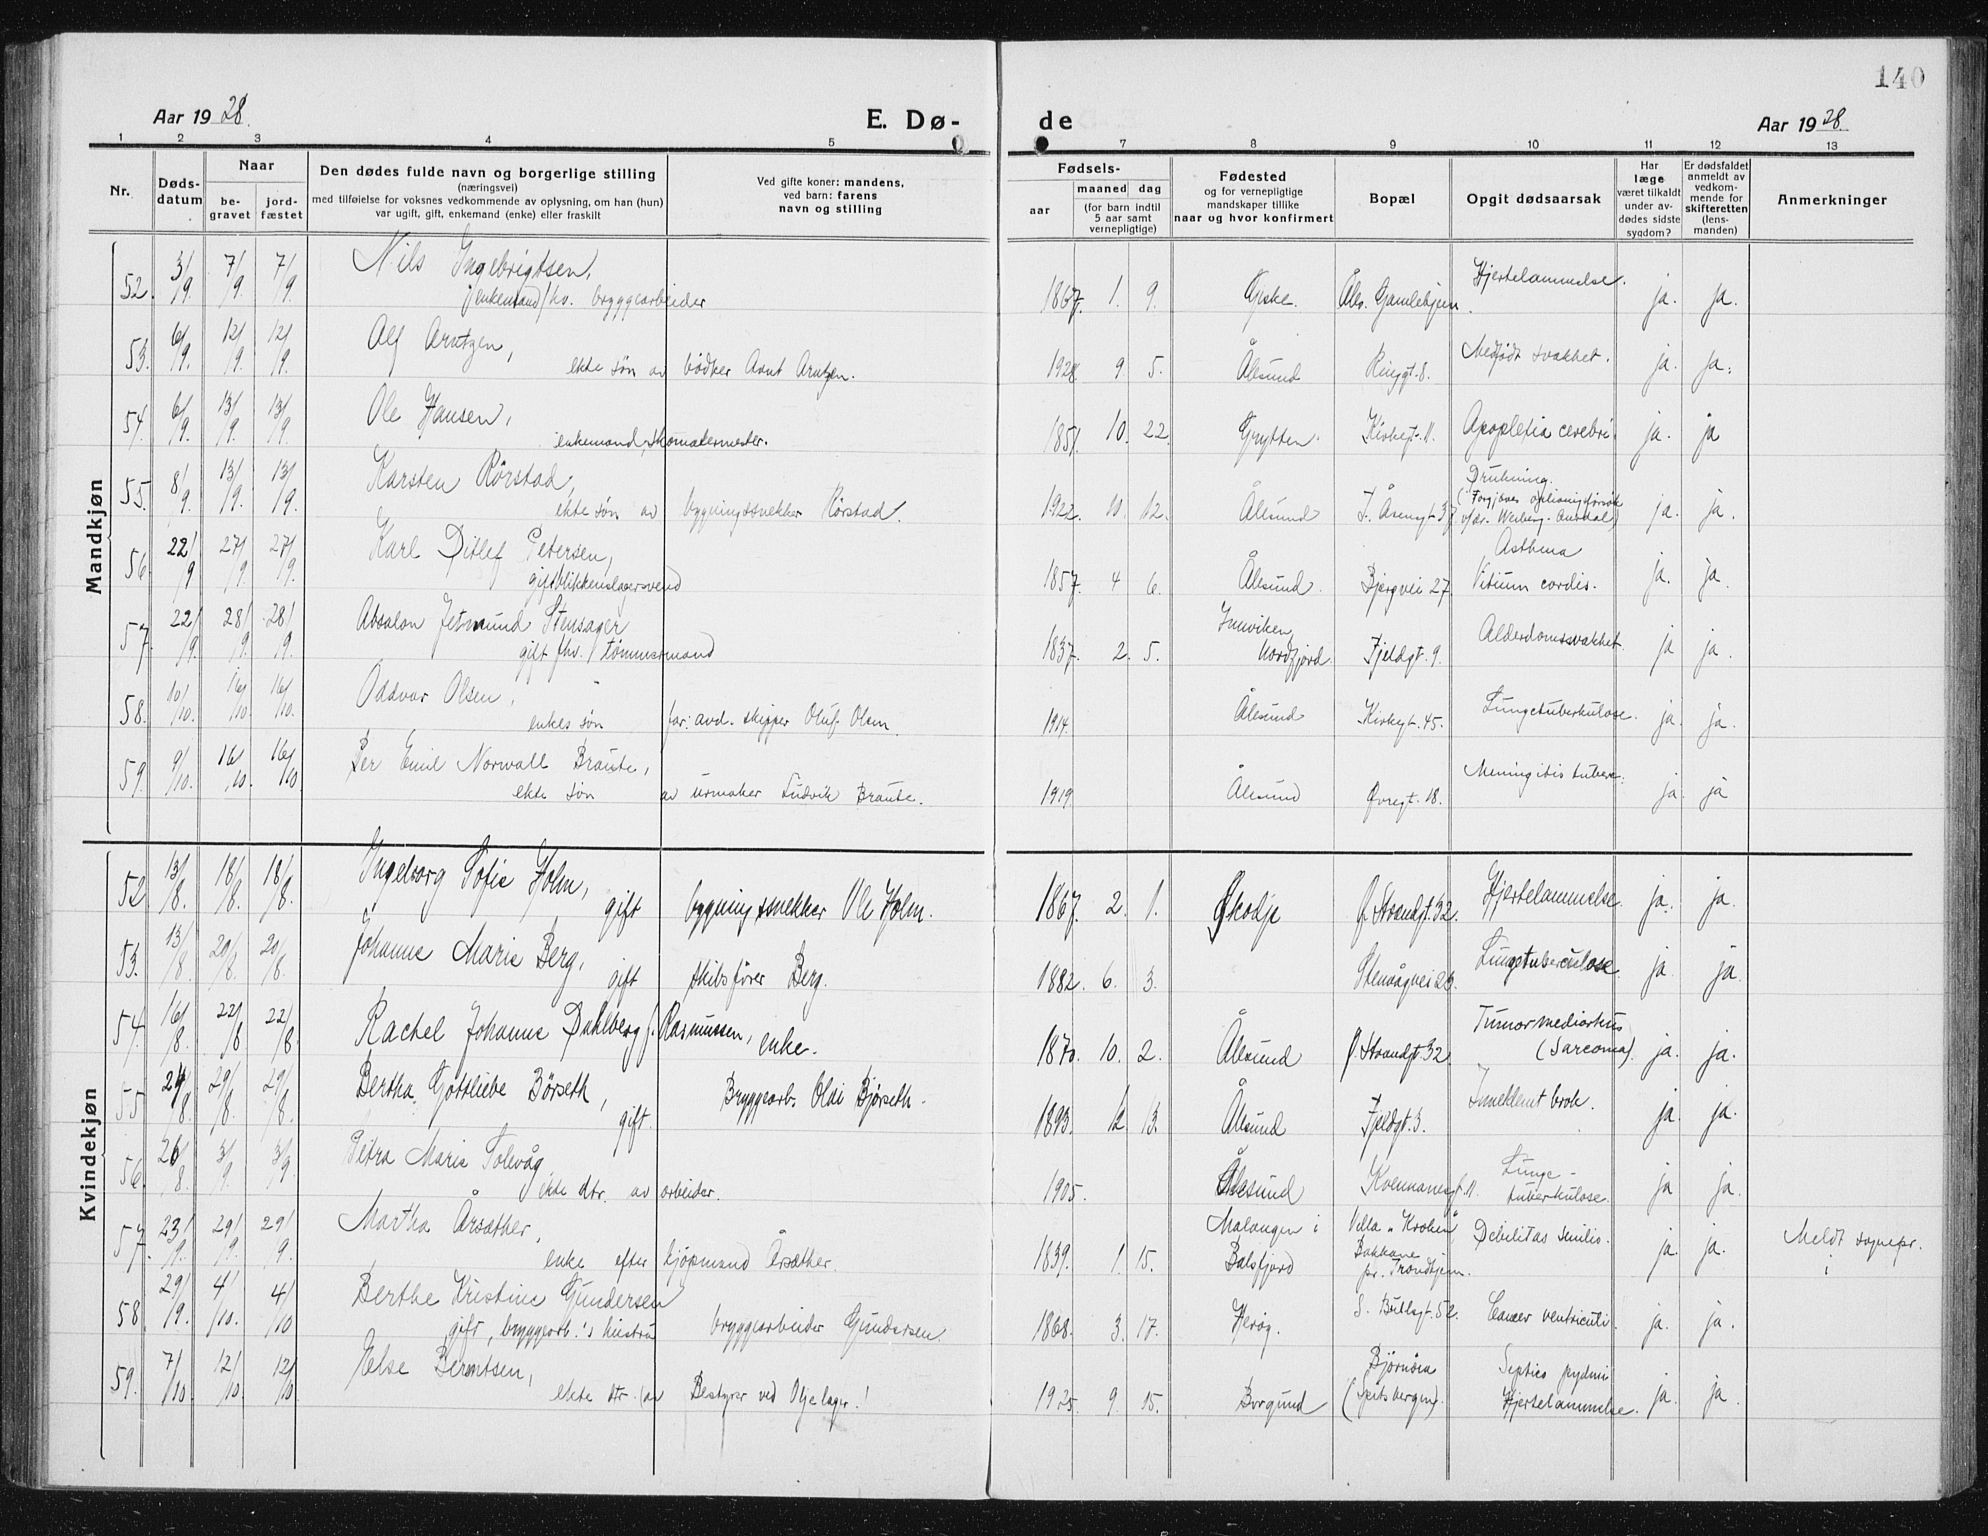 140
Aar 1928. E. Dø- de Aar 1928.
1 2 3 4 5 7 8 9 10 11 12 13
Nr.
Døds-
datum
Naar
be-
gravet
jord-
fæstet
Den dødes fulde navn og borgerlige stilling
(næringsvei)
med tilføielse for voksnes vedkommende av oplysning, om han (hun)
var ugift, gift, enkemand (enke) eller fraskilt
Ved gifte koner: mandens,
ved barn: farens
navn og stilling
Fødsels-
aar
maaned dag
(for barn indtil
5 aar samt
vernepligtige)
Fødested
og for vernepligtige
mandskaper tillike
naar og hvor konfirmert
Bopæl
Opgit dødsaarsak
Har
læge
været tilkaldt
under av-
dødes sidste
sygdom?
Er dødsfaldet
anmeldt av
vedkom-
mende for
skifteretten
(lens-
manden)
Anmerkninger
Mandkjøn
52. 3/9. 7/9. 7/9. Nils Ingebrigtsen,
enkemand, fhv. bryggearbeider
1867. 1. 9. Giske. Åles. Gamlehjem. Hjertelammelse. ja. ja.
53. 6/9. 12/9. 12/9. Alf Arntzen,
ekte søn av bødker Arnt Arntzen.
1928. 9 5. Ålesund Ringgt. 8. Medfødt svakhet. ja. ja.
54. 6/9. 13/9. 13/9. Ole Hansen,
enkemand, skomakermester.
1851. 10. 22. Grytten. Kirkegt. 11. Apoplexia cerebri. ja. ja
55. 8/9. 13/9. 13/9. Karsten Rørstad,
ekte søn av bygningssnekker Rørstad.
1922. 10. 12. Ålesund I. Åsengt 37. Drukning.
(Forgjæves oplivningsforsøk
ja. ja.
56. 22/9 27/9. 27/9. Karl Ditlef Petersen,
gift, blikkenslagersvend
1857. 4 6. Ålesund. Bjergvei 27. Asthma
Vitium cordis. ja. ja.
57. 22/9. 28/9. 28/9. Absalon Jetmund Stensager
gift fhv. tømmermand
1837. 2. 5. Innviken
Nordfjord. Fjeldgt. 9. Alderdomssvakhet. ja ja.
58. 10/10. 16/10. 16/10. Oddvar Olsen,
enkes søn far: avd. skipper Oluf Olsen.
1914. Ålesund Kirkegt. 45. Lungetuberkulose. ja. ja.
59. 9/10. 16/10. 16/10 Per Emil Norwall Braute,
ekte søn av urmaker Ludvik Braute.
1919. Ålesund Øvregt. 18. Meningitis tuberc. ja. ja
Kvindekjøn
52 13/8. 18/8. 18/8. Ingeborg Sofie Holm,
gift bygningssnekker Ole Holm.
1867. 2. 1. Skodje Ø. Strandgt. 32. Hjertelammelse. ja. ja.
53. 13/8. 20/8. 20/8. Johanne Marie Berg,
gift skibsfører Berg.
1882. 6. 3. Stenvågvei 26. Lungetuberculose. ja ja.
54. 16/8. 22/8 22/8. Rachel Johanne Dahlberg f. Rasmussen, enke.
1870. 10. 2. Ålesund Ø. Strandgt. 32 Tumor mediastinus
(Sarcoma). ja. ja.
55 24/8. 29/8. 29/8. Bertha Gottliebe Børseth,
gift. Bryggearb. Oldi Bjørseth.
1893. 12 13. Ålesund Fjeldgt. 3. Inneklemt brok. ja ja.
56. 26/8. 3/9. 3/9. Petra Marie Tolevåg,
ekte dtr. av arbeider.
1905. Ålesund Kvennanesgt. 11. Lunge-
tuberkulose. ja ja.
57. 23/9. 29/9. 29/9. Martha Årsæther,
enke efter kjøpmand Årsæther.
1839. 1. 15. Malangen i
Balsfjord Villa "Kroken"
Bakkane
pr. Trondhjem. Debilitas senilis. ja. ja. Meldt sognepr.
i
58. 29/9. 4/10. 4/10 Berthe Kristine Gundersen
gift, bryggearb.'s hustru bryggearbeider Gundersen.
1868. 3. 17. Herøy. S. Bullsgt. 52. Cancer ventriculi. ja. ja.
59. 7/10 12/10 12/10 Else Berntsen,
ekte dtr. av Bestyrer ved Oljelager!
1925. 9. 15. Borgund Bjørnøia
(Spitsbergen). Hjertelammelse. ja. ja.